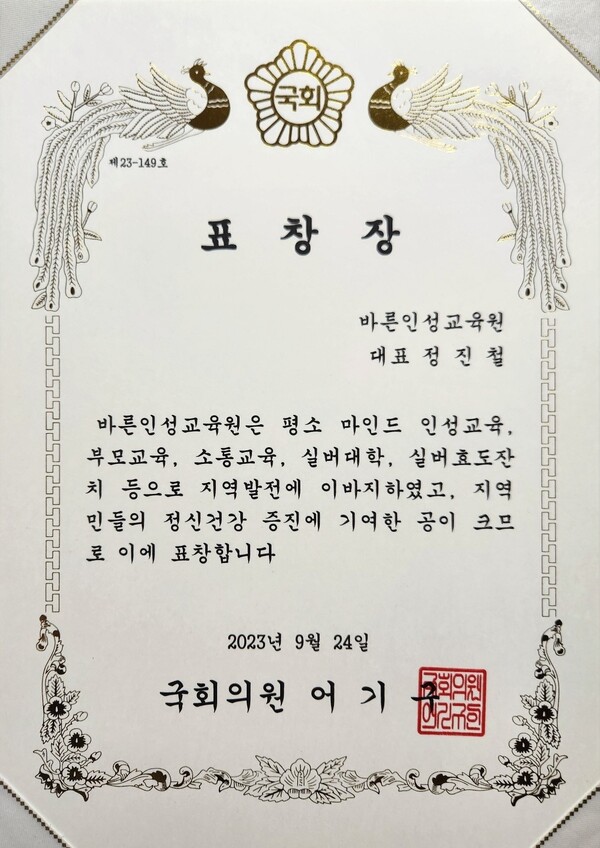 국회
제23-149호
표창장
바른인성교육원
대표 정진철
바른인성교육원은 평소 마인드 인성교육,
부모교육, 소통교육, 실버대학, 실버효도잔
치 등으로 지역발전에 이바지하였고, 지역
민들의 정신건강 증진에 기여한 공이 크므
로 이에 표창합니다
2023년 9월 24일
국회의원 어기구
국회의원
어기구인